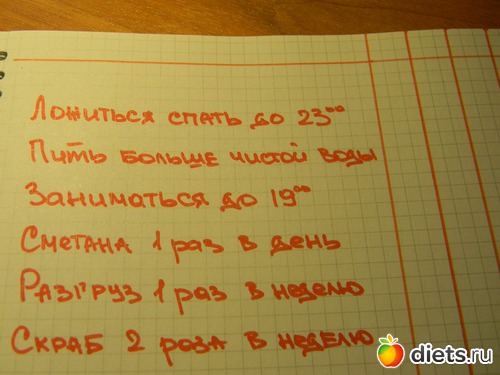 Ложиться спать до 23⁰⁰
Пить больше чистой воды
Заниматься до 19⁰⁰
Сметана 1 раз в день
Разгруз 1 раз в неделю
Скраб 2 роза в неделю
diets.ru